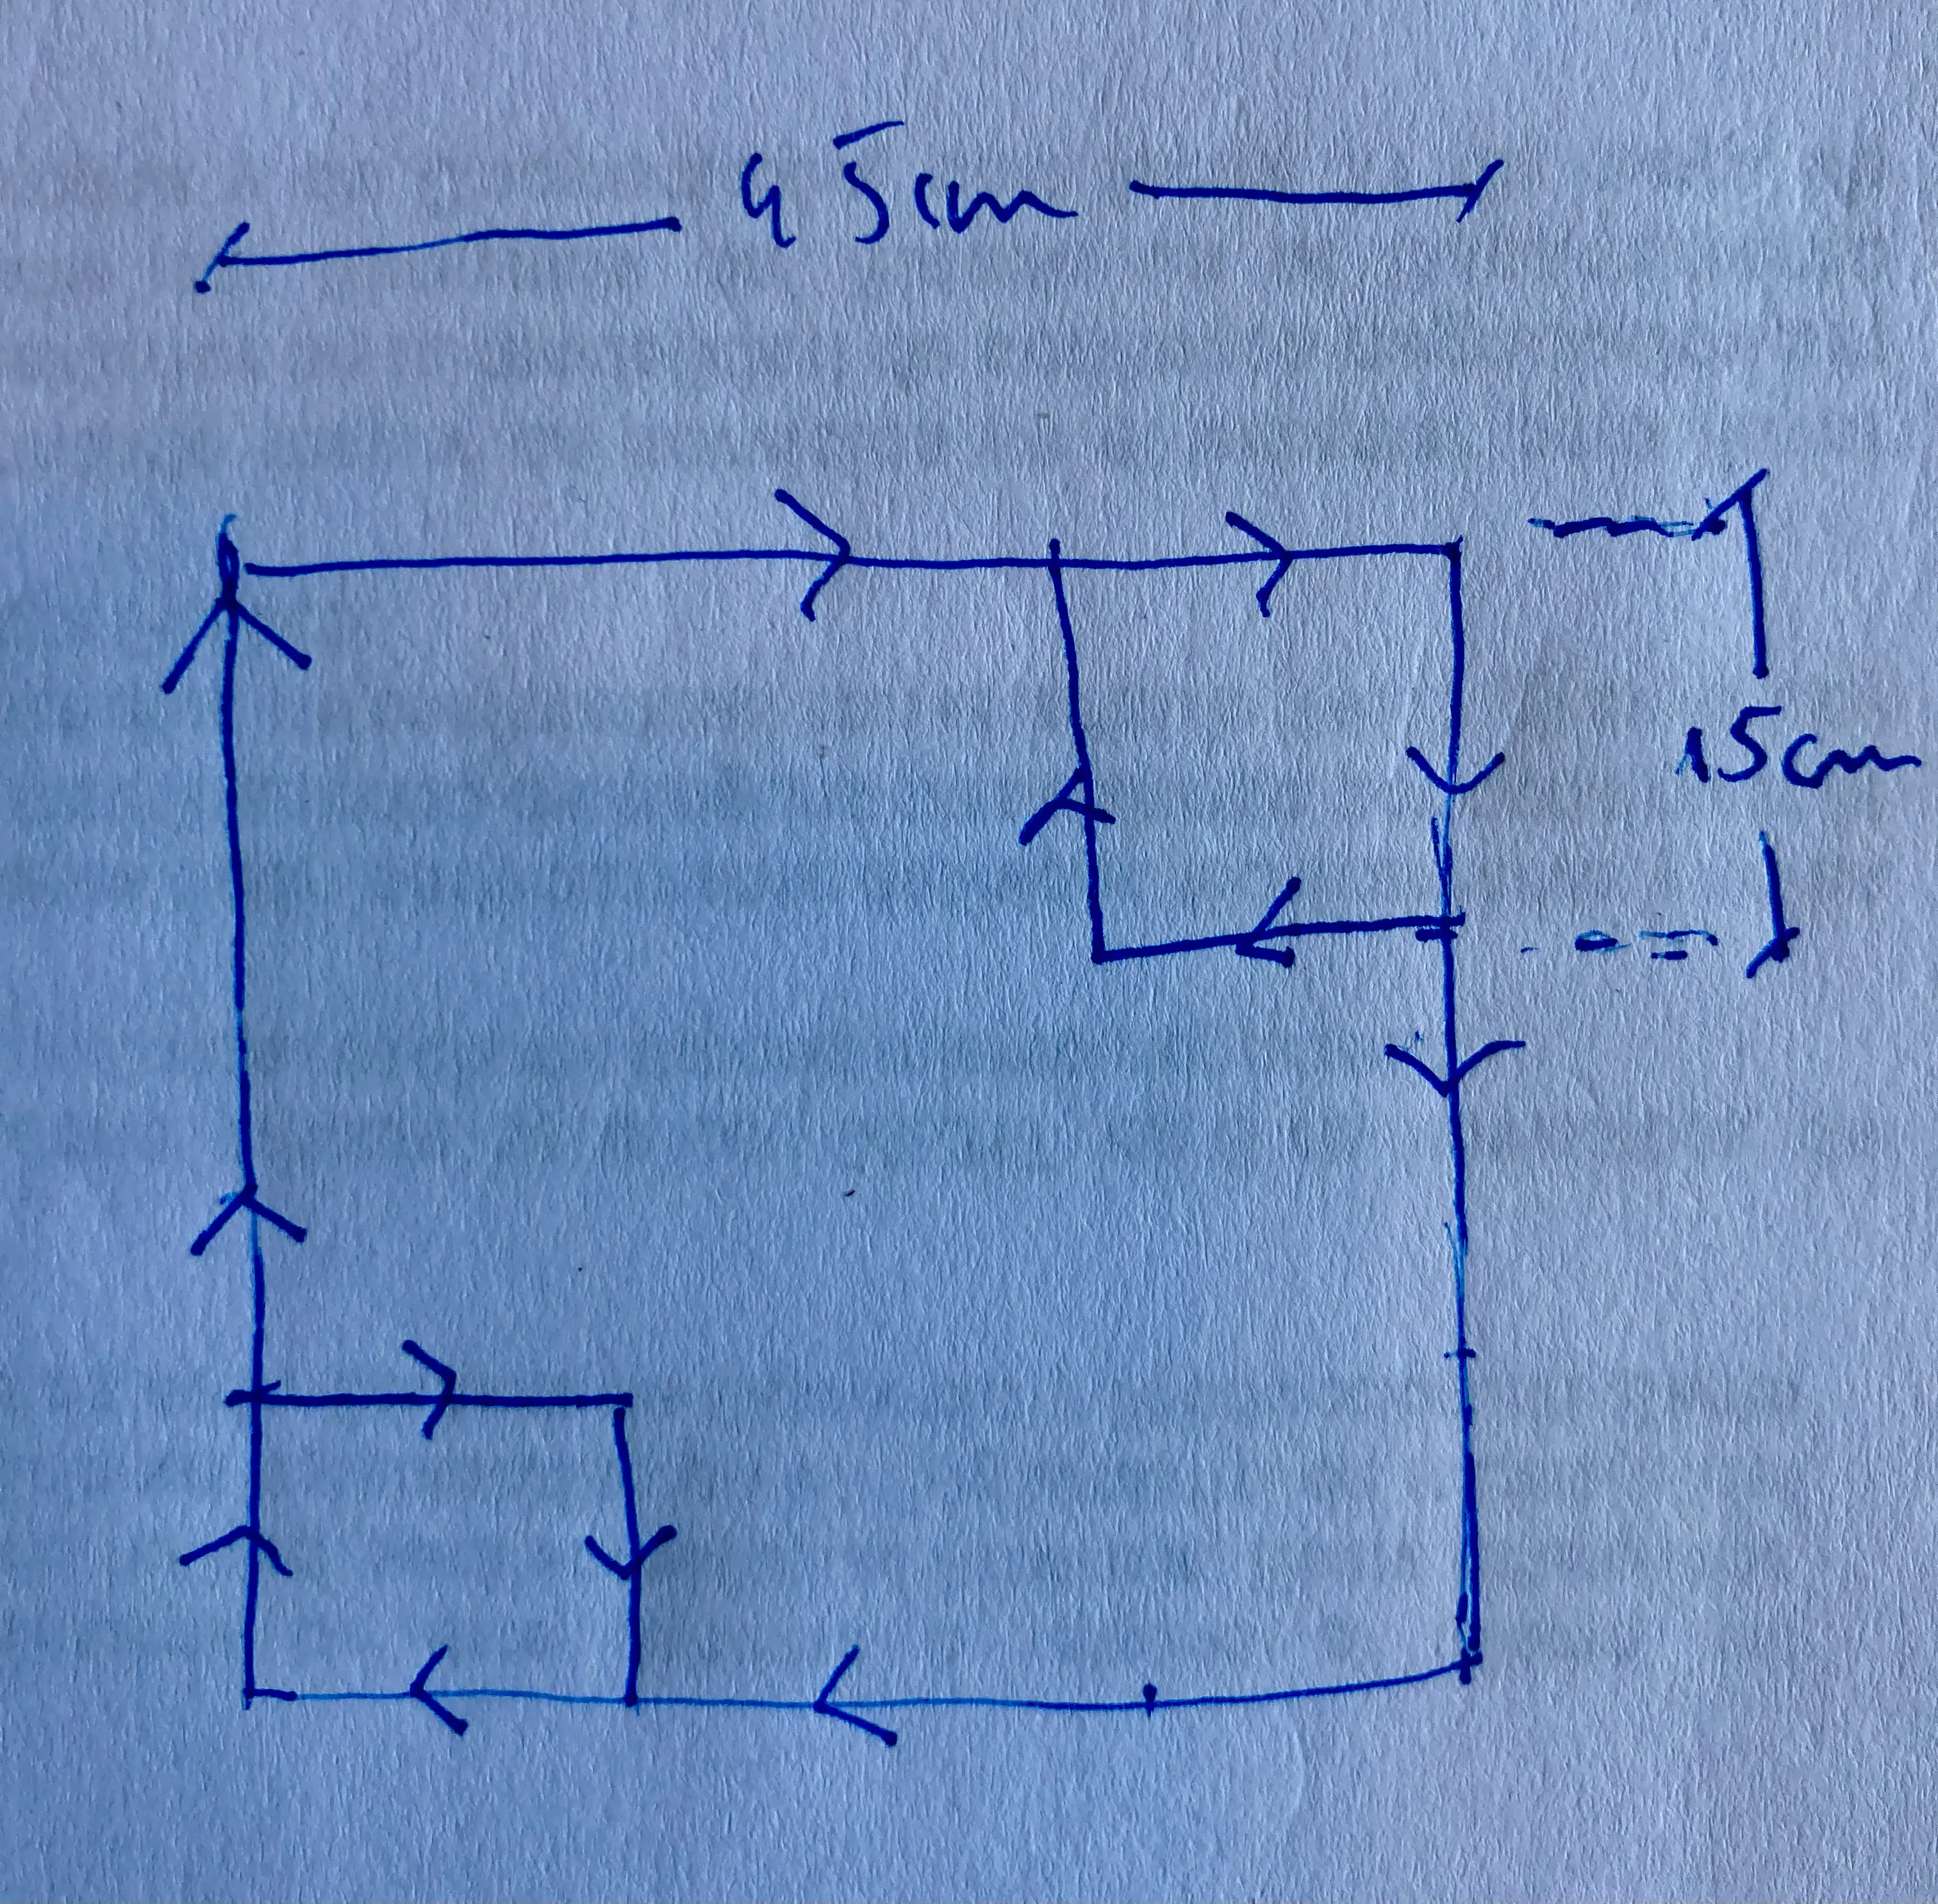 45cm
15cm